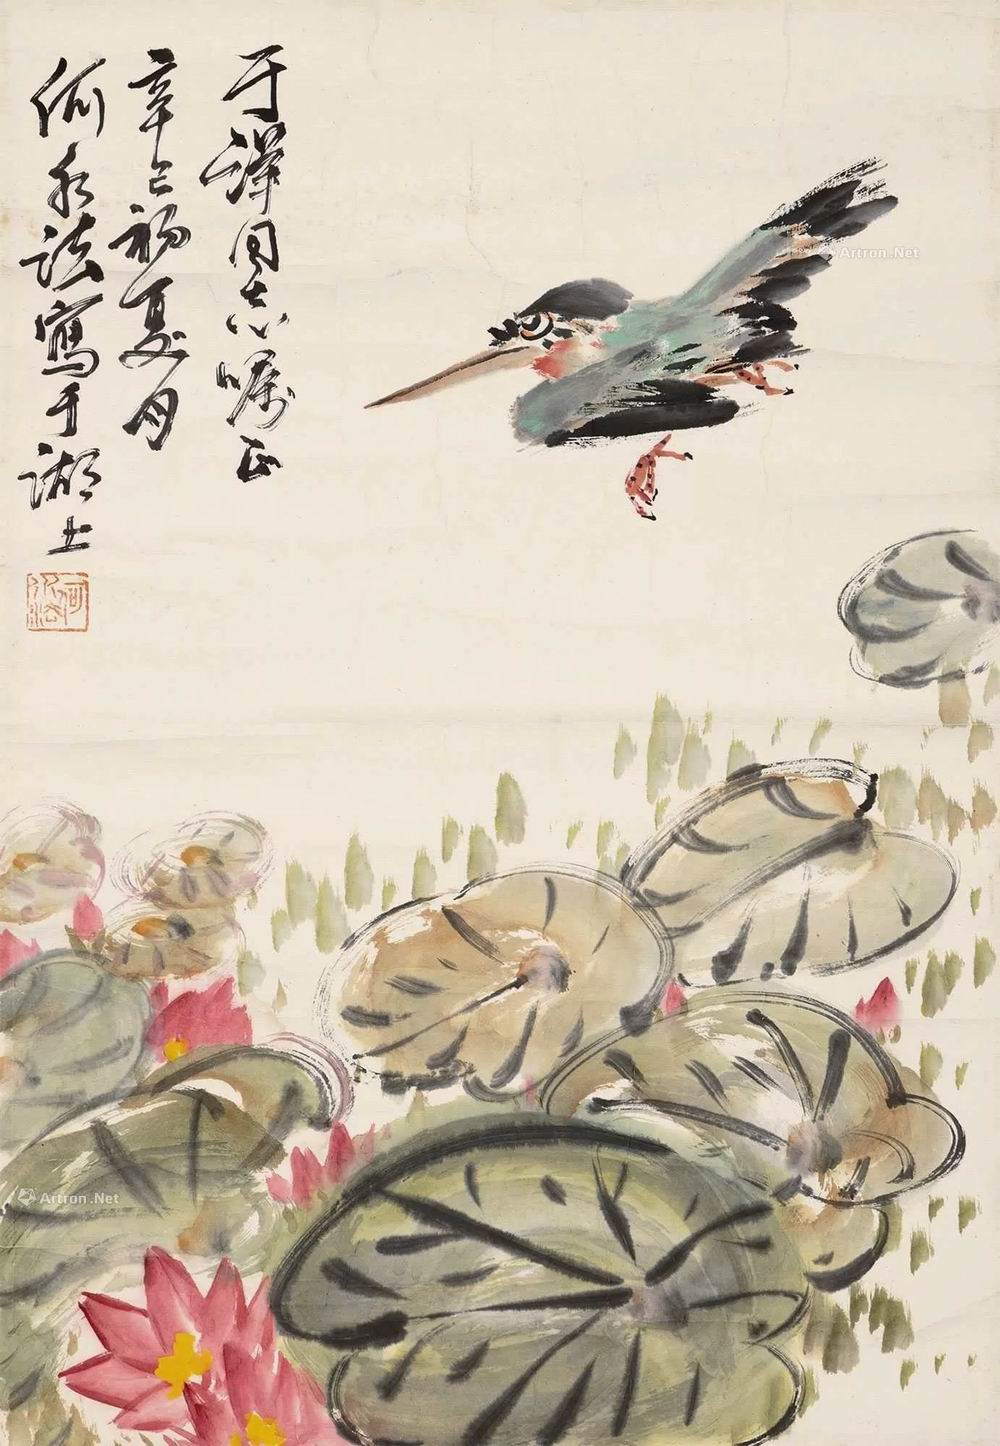 于泽同志嘱正
辛巳初夏月
何水法写于湖上
何水法
Artron.Net
Artron.Net